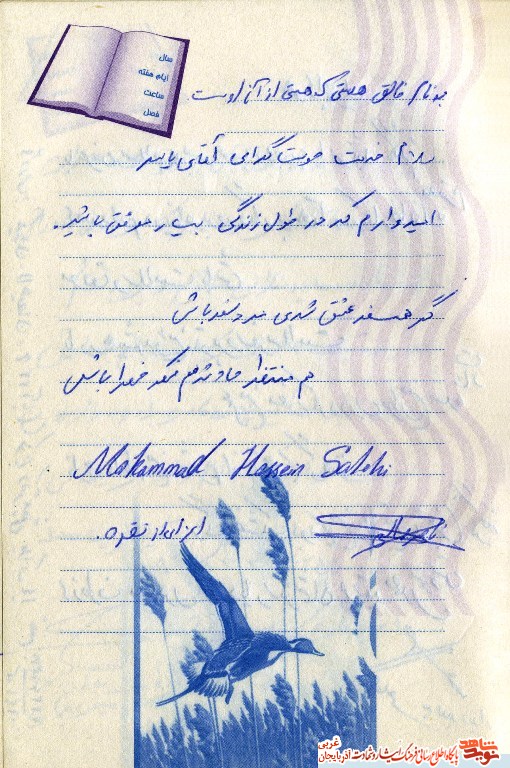 سال
ایام هفته
ساعت
فصل
به نام خالق هستی که هستی از آن اوست
سلام خدمت دوست گرامی آقای یاسر
امیدوارم که در طول زندگی بسیار موفق باشید.
گر همسفر عشق شدی مرد سفر باش
هم منتظر حادثه هم فکر خطر باش
Mohammad Hossein Salehi
ایران از نقده.
نوید شاهد
پایگاه اطلاع رسانی فرهنگ ایثار و شهادت آذربایجان غربی